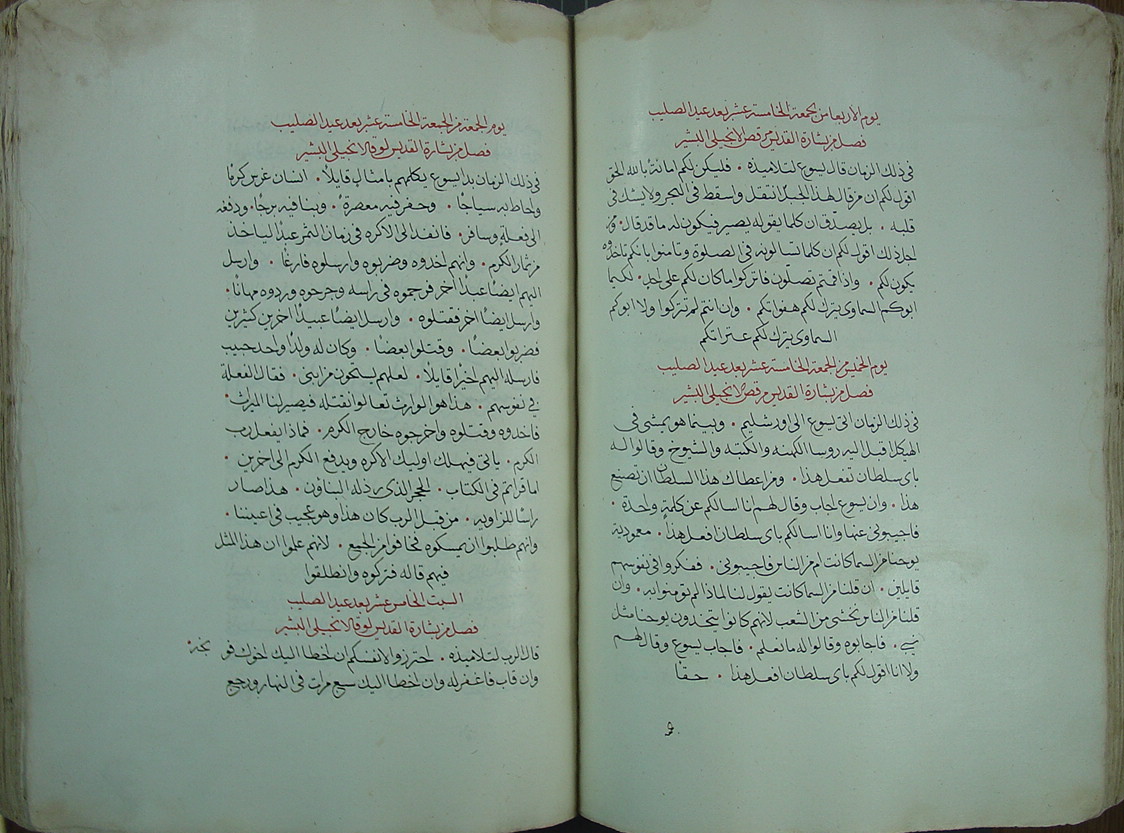 يوم الاربعا من الجمعة الخامسة عشر بعد عيد الصليب
فصل من بشارة القديس مرقص الانجيلي البشير
في ذلك الزمان قال يسوع لتلاميذه . فليكن لكم امانة بالله الحق
اقول لكم ان من قال لهذا الجبل انتقل واسقط في البحر ولا يشك في
قلبه . بل يصدق ان كلما يقوله يصير فيكون له ما قد قال . ومن
اجل ذلك اقول لكم ان كلما تسالونه في الصلوة وتامنوا بانكم تاخذوه
يكون لكم . واذا قمتم تصلون فاتركوا ما كان لكم على احد . لكيما
ابوكم السماوي يترك لكم هفواتكم . وان انتم لم تتركوا ولا ابوكم
السماوي يترك لكم عثراتكم
يوم الخميس من الجمعة الخامسة عشر بعد عيد الصليب
فصل من بشارة القديس مرقص الانجيلي البشير
في ذلك الزمان اتى يسوع الى اورشليم . وبينما هو يمشي في
الهيكل اقبل اليه روسا الكهنه والكتبه والشيوخ وقالوا له
باي سلطان تفعل هذا . ومن اعطاك هذا السلطان ان تصنع
هذا . وان يسوع اجاب وقال لهم انا اسالكم عن كلمة واحدة .
فاجيبوني عنها وانا اسالكم باي سلطان افعل هذا . معمودية
يوحنا من السما كانت ام من الناس فاجيبوني . ففكروا في نفوسهم
قايلين . ان قلنا من السما كانت يقول لنا لماذا لم تومنوا به . وان
قلنا من الناس نخشى من الشعب لانهم كانوا يتخذون يوحنا مثل
نبي . فاجابوه وقالوا له ما نعلم . فاجاب يسوع وقال لهم
ولا انا اقول لكم باي سلطان افعل هذا . حقا
يوم الجمعة من الجمعة الخامسة عشر بعد عيد الصليب
فصل من بشارة القديس لوقا الانجيلي البشير
في ذلك الزمان بدا يسوع يكلمهم بامثال قايلا . انسان غرس كرما
واحاط به سياجا . وحفر فيه معصرة . وبنا فيه برجا . ودفعه
الى فعلة وسافر . فانفد الى الاكره في زمان الثمر عبدا لياخذ
من ثمار الكرم . وانهم اخدوه وضربوه وارسلوه فارغا . وارسل
اليهم ايضا عبدا اخر فرجموه في راسه وجرحوه وردوه مهانا .
وارسل ايضا اخر فقتلوه . وارسل ايضا عبيدا اخرين كثيرين
فضربوا بعضا . وقتلوا بعضا . وكان له ولدا واحد حبيب
فارسله اليهم اخيرا قايلا . لعلهم يستحون من ابني . فقال الفعلة
في نفوسهم . هذا هو الوارث تعالوا نقتله فيصير لنا الميراث .
فاخدوه وقتلوه واخرجوه خارج الكرم . فماذا يفعل رب
الكرم . ياتي فيهلك اوليك الاكره ويدفع الكرم الى اخرين .
اما قراتم في الكتاب . الحجر الذي رذله البناوون . هذا صار
راسا للزاويه . من قبل الرب كان هذا وهو عجيب في اعيننا .
وانهم طلبوا ان يمسكوه فخافوا من الجميع . لانهم علموا ان هذا المثل
فيهم قاله فتركوه وانطلقوا
السبت الخامس عشر بعد عيد الصليب
فصل من بشارة القديس لوقا الانجيلي البشير
قال الرب لتلاميذه . احترزوا لانفسكم ان اخطا اليك اخوك فو بخه .
وان تاب فاغفر له وان اخطا اليك سبع مرات في النهار ورجع